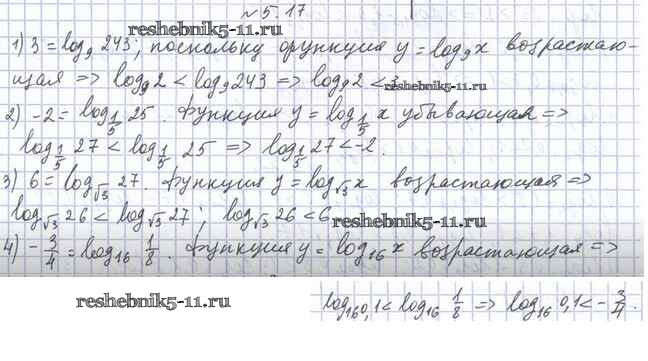 №5.17
reshebnik5-11.ru
1) 3 = log₉ 243; поскольку функция y = log₉x возрастаю-
щая => log₉2 < log₉243 => log₉2 < 3.
reshebnik5-11.ru
2) -2 = log_{1/5} 25. Функция y = log_{1/5} x убывающая =>
log_{1/5} 27 < log_{1/5} 25 => log_{1/5} 27 < -2.
3) 6 = log_{√3} 27. Функция y = log_{√3} x возрастающая =>
log_{√3} 26 < log_{√3} 27; log_{√3} 26 < 6
reshebnik5-11.ru
4) -3/4 = log₁₆ 1/8. Функция y = log₁₆ x возрастающая =>
reshebnik5-11.ru
log₁₆0,1 < log₁₆ 1/8 => log₁₆ 0,1 < -3/4.